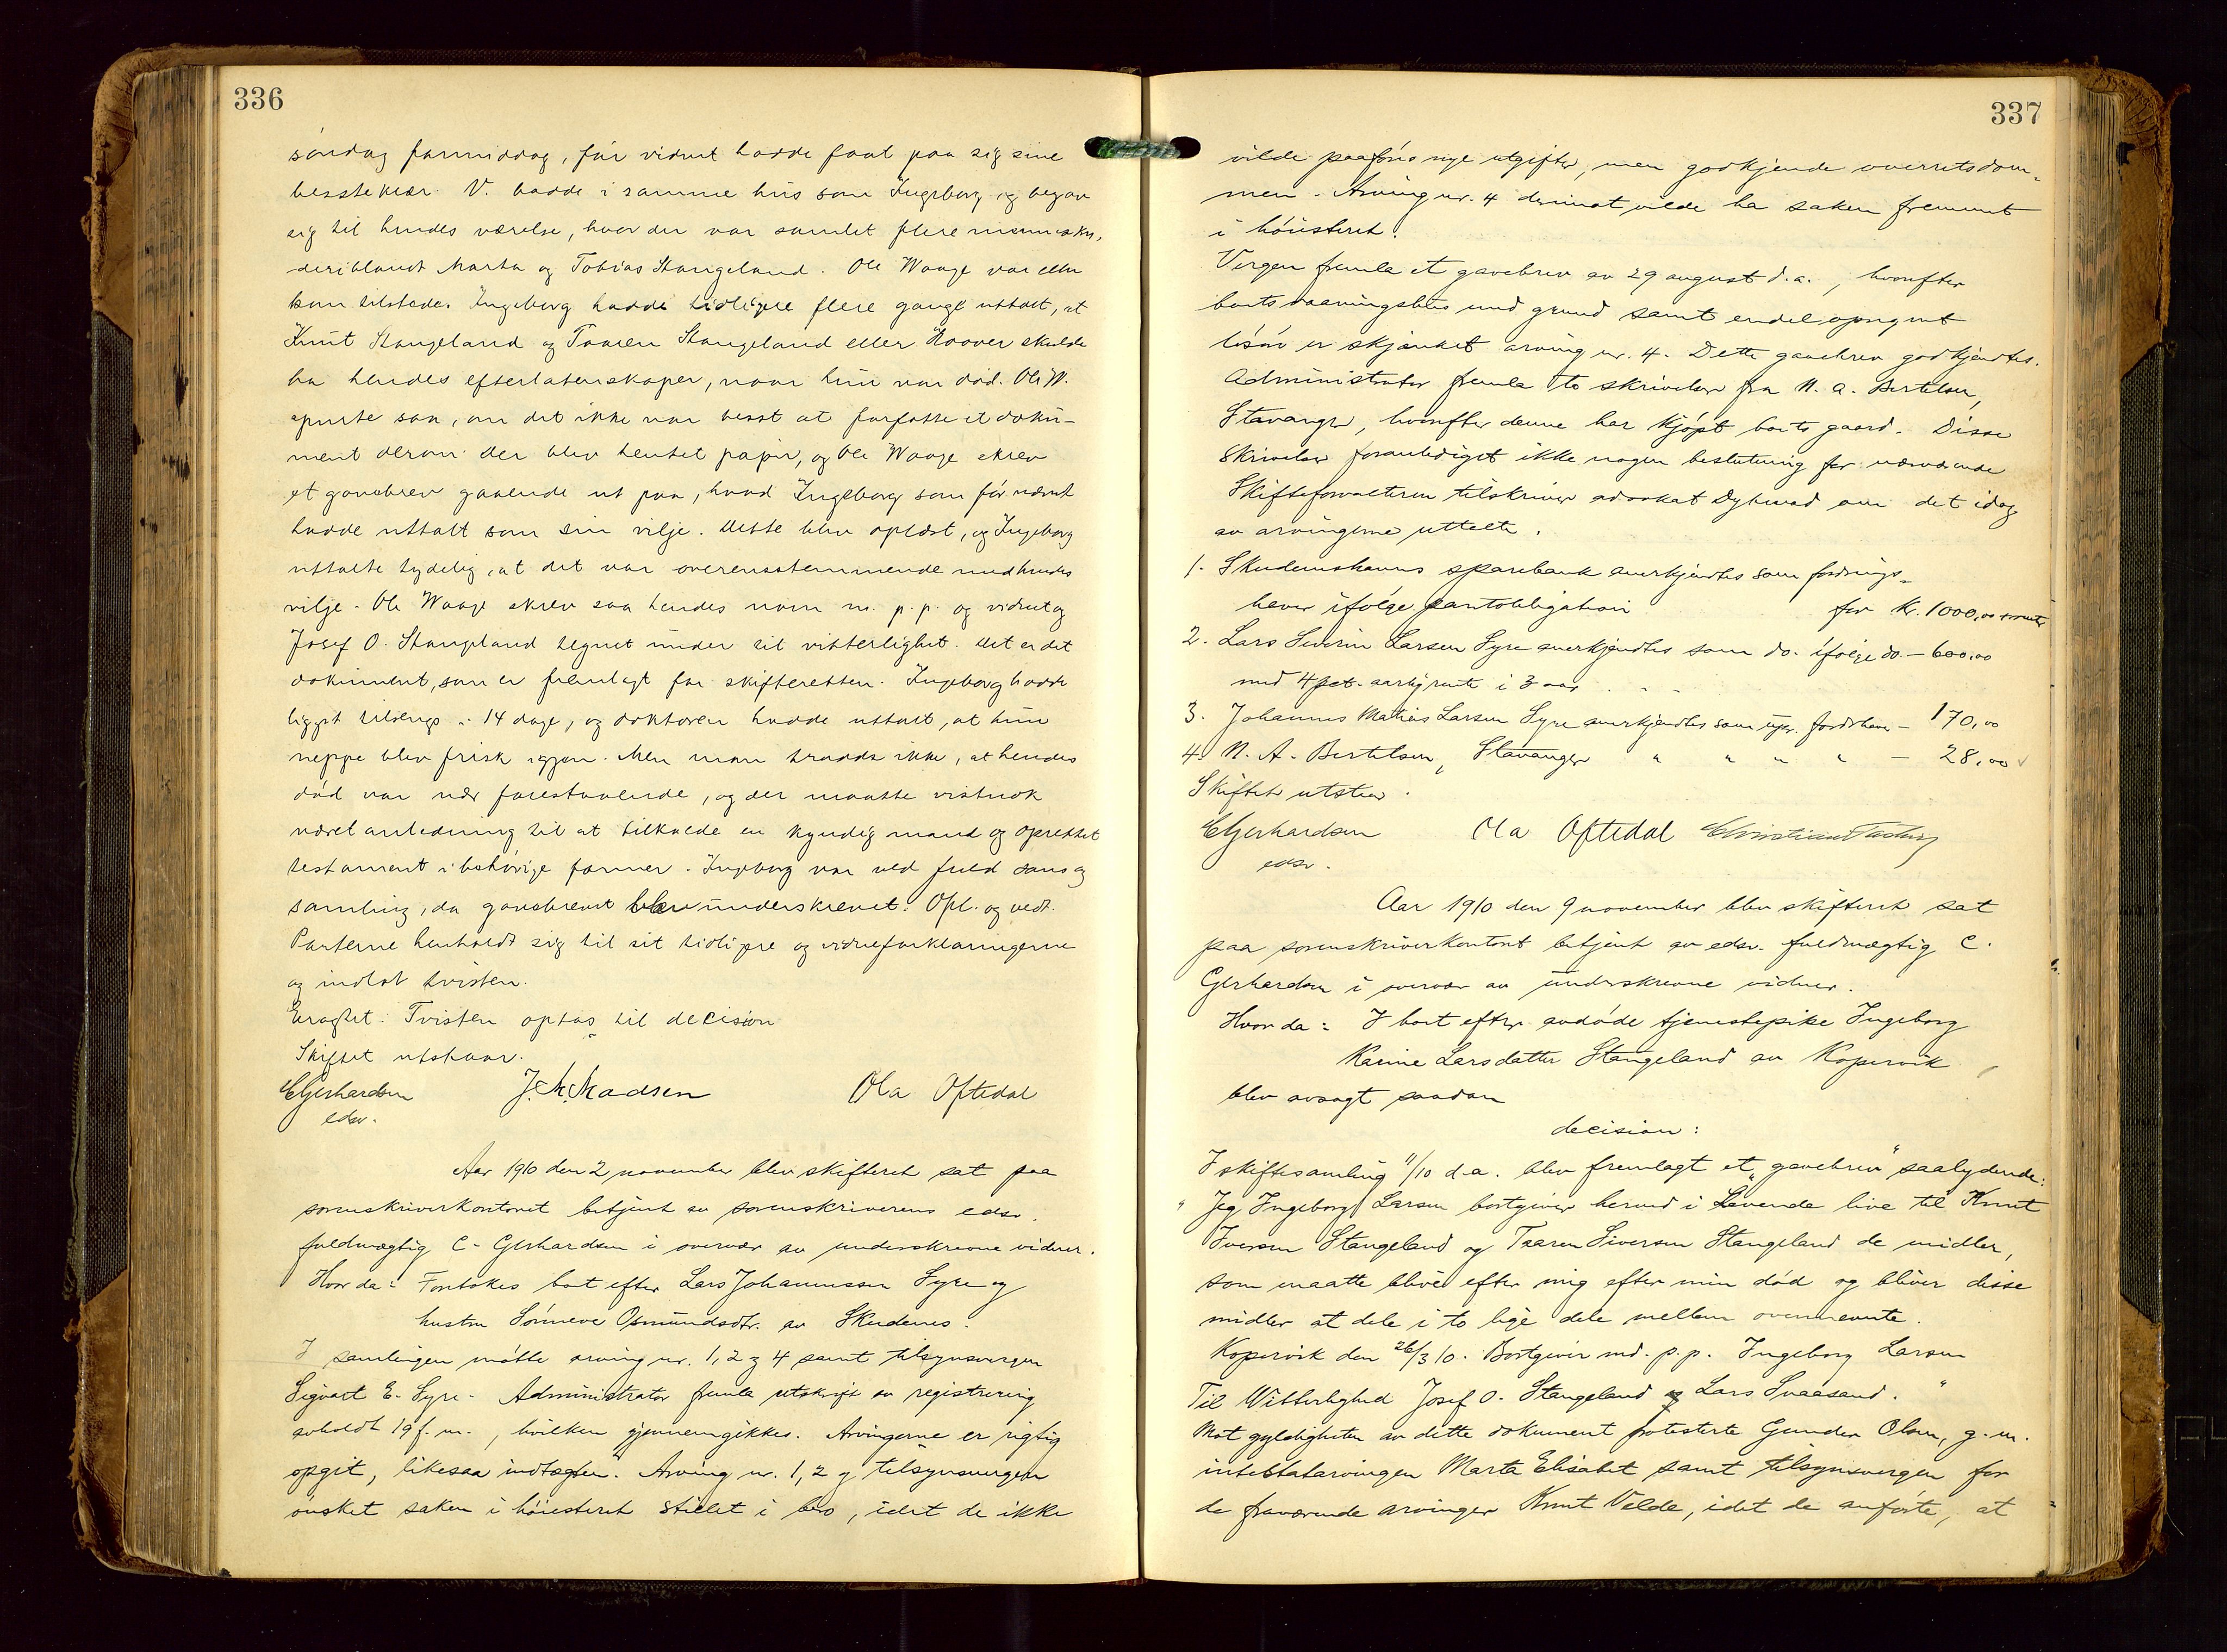 336
söndag formiddag, för vidnet hadde faat paa sig sine
bedste klær. V. bodde i samme hus som Ingeborg og begav
sig til hendes værelse, hvor der var samlet flere mennesker,
deriblandt Marta og Tobias Stangeland. Ole Waage var eller
kom tilstede. Ingeborg hadde tidligere flere gange uttalt, at
Knut Stangeland og Taaren Stangeland eller Hoover skulde
ha hendes efterlatenskaper, naar hun var död. Ole W.
spurte saa, om det ikke var best at forfatte et doku-
ment derom. Der blev hentet papir, og Ole Waage skrev
et gavebrev gaaende ut paa, hvad Ingeborg som för nævnt
hadde uttalt som sin vilje. Dette blev oplæst, og Ingeborg
uttalte tydelig, at det var overensstemmende med hendes
vilje. Ole Waage skrev saa hendes navn m. p. p. og vidnet og
Josef O. Stangeland tegnet under til vitterlighet. Det er det
dokument, som er fremlagt for skifteretten. Ingeborg hadde
ligget tilsengs i 14 dage, og doktoren hadde uttalt, at hun
neppe blev frisk igjen. Men man trodde ikke, at hendes
död var nær forestaaende, og der maatte vistnok
været anledning til at tilkalde en kyndig mand og oprettet
testament i behörige former. Ingeborg var ved fuld sans og
samling, da gavebrevet blev underskrevet. Opl. og vedt.
Parterne henholdt sig til sit tidligere og vidneforklaringerne
og indlot tvisten.
Eragtet: Tvisten optas til decision
Skiftet utstaar.
C Gerhardsen J. M. Madsen Ola Oftedal
edsv.
Aar 1910 den 2 november blev skifteret sat paa
sorenskriverkontoret betjent av sorenskriverens edsv.
fuldmægtig C. Gerhardsen i overvær av underskrevne vidner.
Hvor da: Foretokes bort efter Lars Johannessen Syre og
hustru Sönneve Osmundsdtr. av Skudenes.
I samlingen mötte arving nr. 1, 2 og 4 samt tilsynsvergen
Sigvart E. Syre. Administrator fremla utskrift av registrering
avholdt 19 f. m., hvilken gjennemgikkes. Arvingerne er rigtig
opgit, likesaa indtægten. Arving nr. 1, 2 og tilsynsvergen
önsket saken i höiesteret stillet i bero, idet de ikke
337
vilde paaföres nye utgifter, men godkjende overretsdom-
men. Arving nr. 4 derimot vilde ha saken fremmet
i höiesteret.
Vergen fremla et gavebrev av 29 august d.a., hvorefter
boets vaaningshus med grund samt endel opregnet
lösöre er skjænket arving nr. 4. Dette gavebrev godkjendtes.
Administrator fremla to skrivelser fra N. A. Bertelsen,
Stavanger, hvorefter denne har kjöpt boets gaard. Disse
skrivelser foranlediget ikke nogen beslutning for nærværende
Skifteforvalteren tilskriver advokat Dyhrvad om det idag
av arvingerne uttalte.
1. Skudeneshavns sparebank anerkjendtes som fordrings-
haver ifölge pantobligation for kr. 1000,00 + renter
2. Lars Severin Larsen Syre anerkjendtes som do. ifölge do. — 600,00
med 4 pct. aarlig rente i 3 aar . . .
3. Johannes Matias Larsen Syre anerkjendtes som upr. fordrshaver — 170,00
4. N. A. Bertelsen, Stavanger " " " " — 28,00
Skiftet utstaar.
C Gerhardsen Ola Oftedal Christian
edsv.
Aar 1910 den 9 november blev skifteret sat
paa sorenskriverkontoret betjent av edsv. fuldmægtig C.
Gerhardsen i overvær av underskrevne vidner.
Hvor da: I boet efter avdöde tjenestepike Ingeborg
Karine Larsdatter Stangeland av Kopervik
blev avsagt saadan
decision:
I skiftesamling 11/10 d.a. blev fremlagt et „gavebrev" saalydende:
" Jeg Ingeborg Larsen bortgiver herved i Levende live til Knut
Iversen Stangeland og Taaren Siversen Stangeland de midler,
som maatte blive efter mig efter min död og bliver disse
midler at dele i to lige dele mellem ovennevnte.
Kopervik den 26/3 10. Bortgiver md. p. p. Ingeborg Larsen
Til Witterlighed Josef O. Stangeland og Lars Svaasand. "
Mot gyldigheten av dette dokument protesterte Gunder Olsen, g. m.
intestatarvingen Marta Elisabet samt tilsynsvergen for
de fraværende arvinger Knut Velde, idet de anförte, at